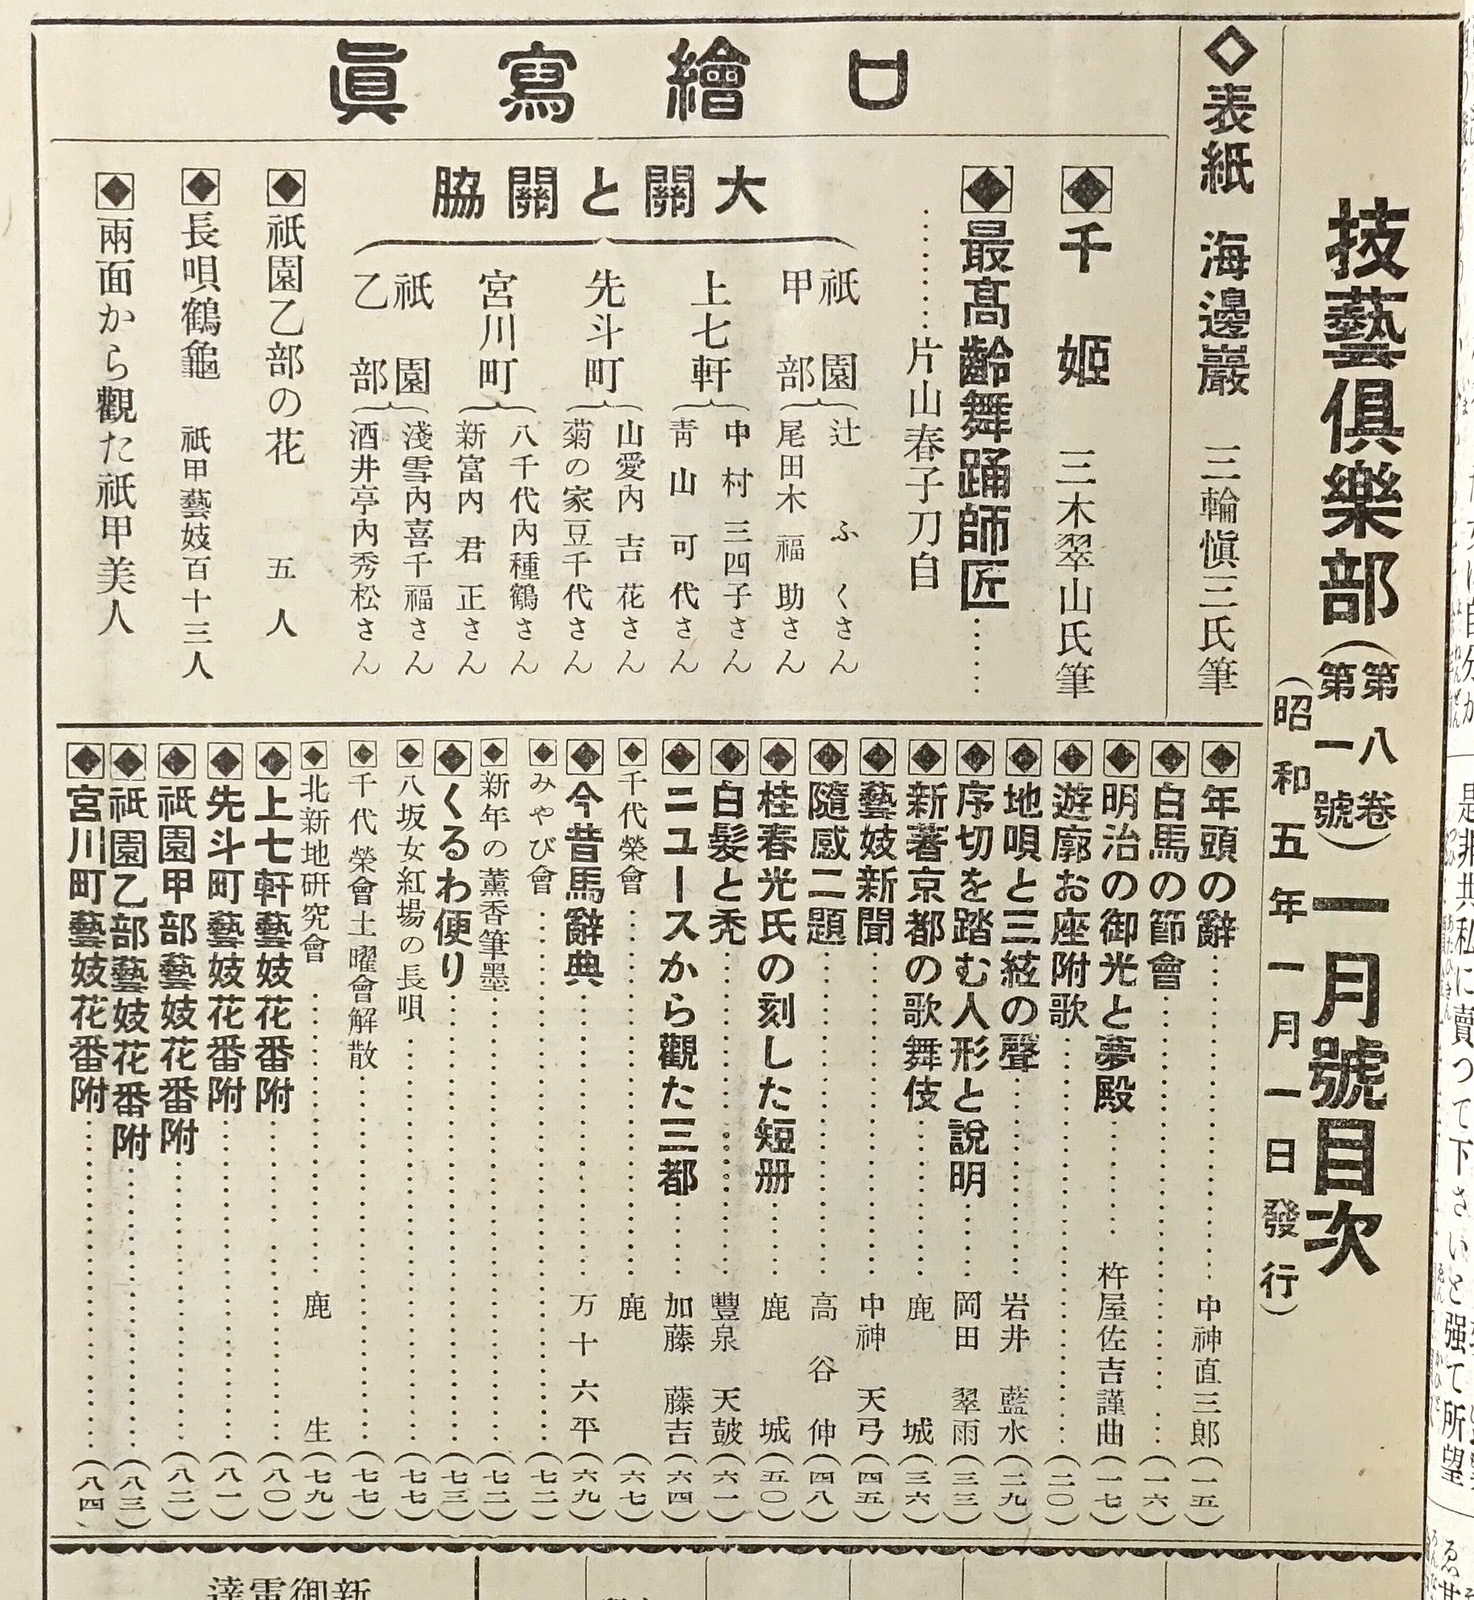 技藝倶樂部(第八卷第一號)一月號目次
(昭和五年一月一日發行)
◇表紙 海邊巖 三輪愼三氏筆
口繪寫眞
◆千姬 三木翠山氏筆
◆最髙齡舞踊師匠……
……片山春子刀自
大關と關脇
祇園甲部 辻ふくさん
尾田木福助さん
上七軒 中村三四子さん
靑山可代さん
先斗町 山愛內吉花さん
菊の家豆千代さん
宮川町 八千代內種鶴さん
新富內君正さん
祇園乙部 淺雪內喜千福さん
酒井亭內秀松さん
◆祇園乙部の花 五人
◆長唄鶴龜 祇甲藝妓百十三人
◆兩面から觀た祇甲美人
◆年頭の辭……中神直三郞(一五)
◆白馬の節會……(一六)
◆明治の御光と夢殿……杵屋佐吉謹曲(一七)
◆遊廓お座附歌……(二〇)
◆地唄と三絃の聲……岩井藍水(二九)
◆序切を踏む人形と說明……岡田翠雨(三三)
◆新著京都の歌舞伎……鹿城(三六)
◆藝妓新聞……中神天弓(四五)
◆隨感二題……高谷伸(四八)
◆桂春光氏の刻した短册……鹿城(五〇)
◆白髮と禿……豐泉天皷(六一)
◆ニユースから觀た三都……加藤藤吉(六四)
◆千代榮會……鹿(六七)
◆今昔馬辭典……万十六平(六九)
◆みやび會……(七二)
◆新年の薰香筆墨……(七二)
◆くるわ便り……(七三)
◆八坂女紅場の長唄……(七七)
◆千代榮會土曜會解散……(七七)
◆北新地硏究會……鹿生(七九)
◆上七軒藝妓花番附……(八〇)
◆先斗町藝妓花番附……(八一)
◆祇園甲部藝妓花番附……(八二)
◆祇園乙部藝妓花番附……(八三)
◆宮川町藝妓花番附……(八四)
是非共私に賣つて下さいと强て所望
新御電達